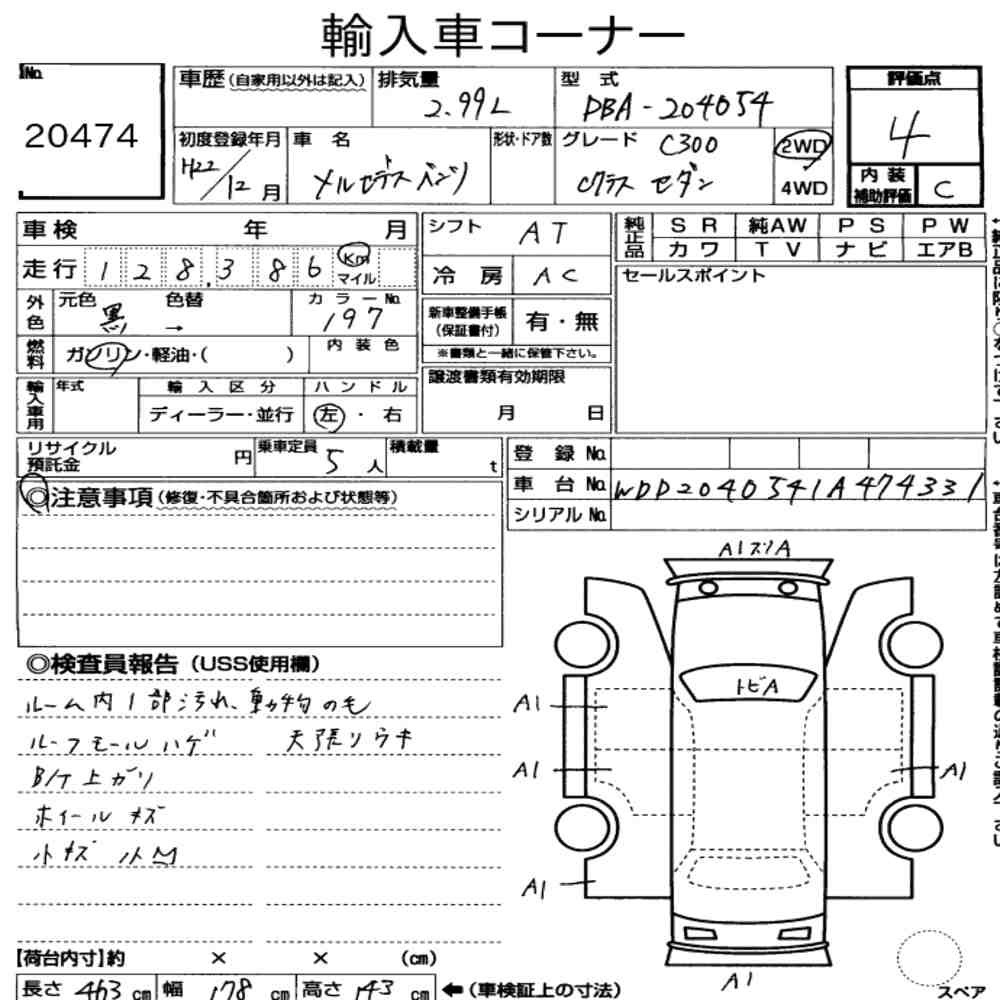 輸入車コーナー
No.
20474
車歴(自家用以外は記入)
排気量
2.99L
型 式
DBA-204054
評価点
4
初度登録年月
H22/12月
車 名
メルセデスベンツ
形状・ドア数
グレード C300
Cクラス セダン
2WD
4WD
内装補助評価
C
車検 年 月
走行 128,386 Km マイル
外色
元色 黒
色替 →
カラーNo. 197
燃料
ガソリン・軽油・( )
内装色
輸入車用
年式
輸入区分
ディーラー・並行
ハンドル
左・右
シフト AT
冷房 AC
新車整備手帳(保証書付)
有・無
※書類と一緒に保管下さい。
譲渡書類有効期限
月 日
純正品
SR 純AW PS PW
カワ TV ナビ エアB
セールスポイント
リサイクル預託金 円
乗車定員 5人
積載量 t
登録No.
車台No. WDD2040541A474331
シリアルNo.
◎注意事項(修復・不具合箇所および状態等)
◎検査員報告(USS使用欄)
ルーム内1部汚れ、動物の毛
ルーフモールハゲ 天張りウキ
B/T上ガリ
ホイールキズ
小キズ 小凹
A1ズリA
トビA
A1
A1
A1
A1
A1
スペア
【荷台内寸】約 × × (cm)
長さ 463cm 幅 178cm 高さ 143cm
←(車検証上の寸法)